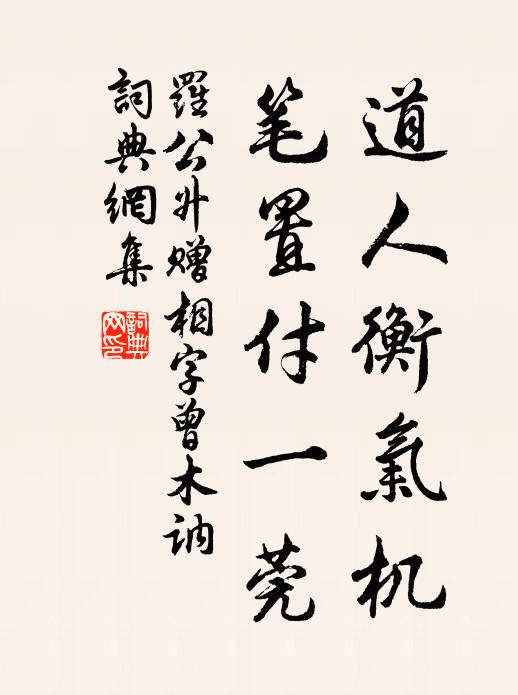 道人衡氣机
笔置付一莞
羅公升贈相字曾木訥
詞典網集
詞典網印